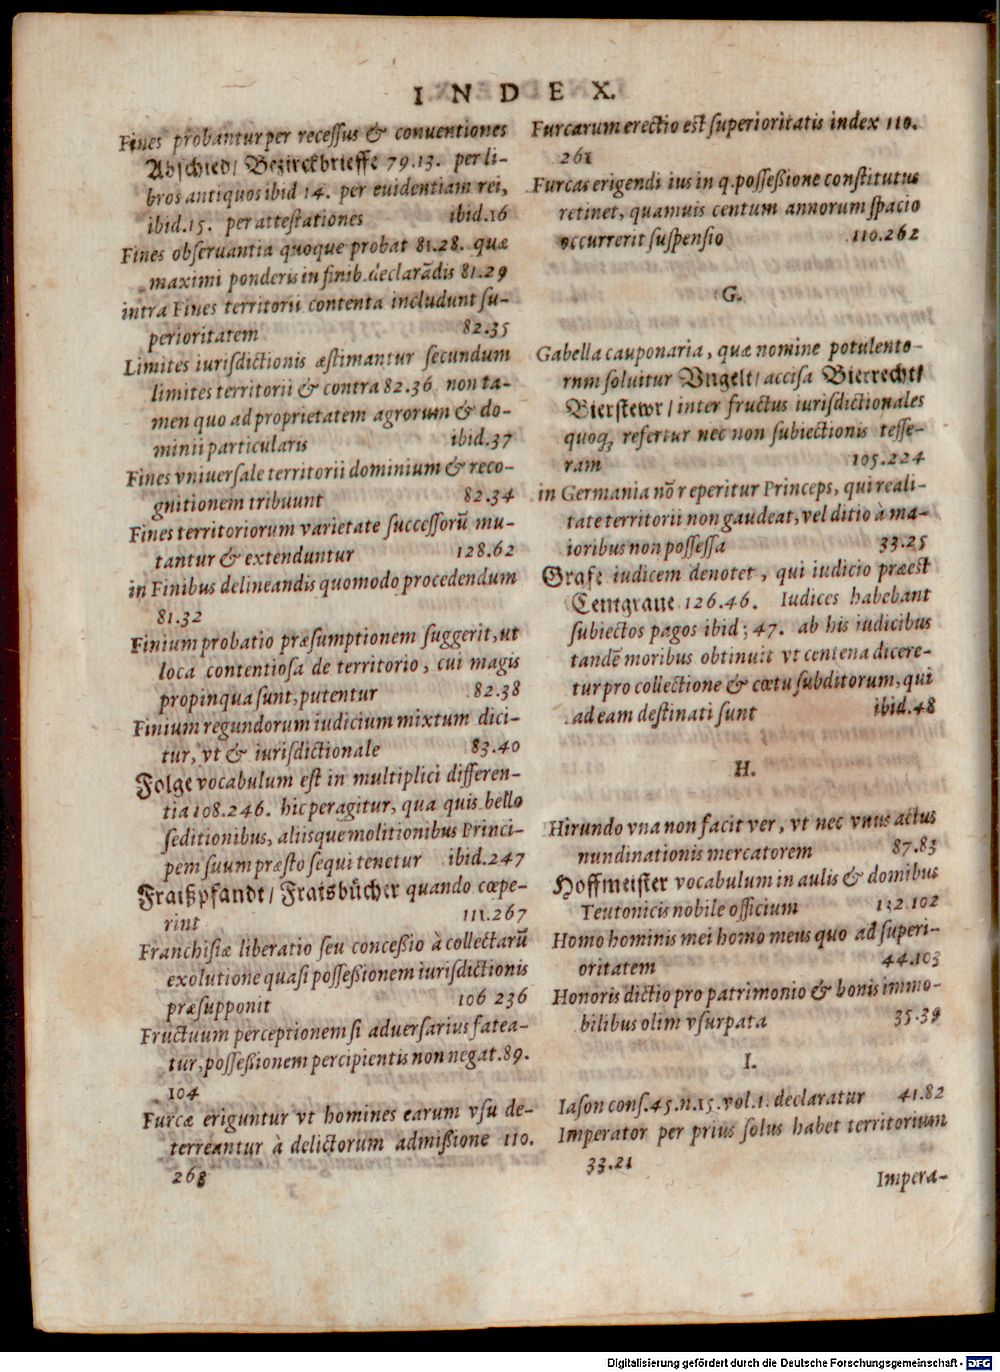 INDEX.
Fines probantur per recessus & conuentiones
Abschied/ Bezirckbrieffe 79.13. per li-
bros antiquos ibid 14. per euidentiam rei,
ibid.15. per attestationes ibid.16
Fines obseruantia quoque probat 81.28. quæ
maximi ponderis in finib. declarādis 81.29
intra Fines territorii contenta includunt su-
perioritatem 82.35
Limites iurisdictionis æstimantur secundum
limites territorii & contra 82.36 non ta-
men quo ad proprietatem agrorum & do-
minii particularis ibid.37
Fines vniuersale territorii dominium & reco-
gnitionem tribuunt 82.34
Fines territoriorum varietate successorū mu-
tantur & extenduntur 128.62
in Finibus delineandis quomodo procedendum
81.32
Finium probatio præsumptionem suggerit, ut
loca contentiosa de territorio, cui magis
propinqua sunt, putentur 82.38
Finium regundorum iudicium mixtum dici-
tur, vt & iurisdictionale 83.40
Folge vocabulum est in multiplici differen-
tia 108.246. hic peragitur, qua quis bello
seditionibus, aliisque molitionibus Princi-
pem suum præsto sequi tenetur ibid.247
Fraißpfandt/ Fraisbücher quando cœpe-
rint 111.267
Franchisiæ liberatio seu conceßio à collectarū
exolutione quasi posseßionem iurisdictionis
præsupponit 106 236
Fructuum perceptionem si aduersarius fatea-
tur, possessionem percipientis non negat. 89.
104
Furcæ eriguntur vt homines earum vsu de-
terreantur à delictorum admißione 110.
263
Furcarum erectio est superioritatis index 110.
261
Furcas erigendi ius in q. posseßione constitutus
retinet, quamuis centum annorum spacio
occurrerit suspensio 110.262
G.
Gabella cauponaria, quæ nomine potulento-
rum soluitur Vngelt/ accisa Bierrecht/
Bierstewr/ inter fructus iurisdictionales
quoq; refertur nec non subiectionis tesse-
ram 105.224
in Germania nō reperitur Princeps, qui reali-
tate territorii non gaudeat, vel ditio à ma-
ioribus non possessa 33.25
Grafe iudicem denotet, qui iudicio præest
Centgraue 126.46. Iudices habebant
subiectos pagos ibid; 47. ab his iudicibus
tandē moribus obtinuit vt centena dicere-
tur pro collectione & cœtu subditorum, qui
ad eam destinati sunt ibid.48
H.
Hirundo vna non facit ver, vt nec vnus actus
nundinationis mercatorem 87.83
Hoffmeister vocabulum in aulis & domibus
Teutonicis nobile officium 132.102
Homo hominis mei homo meus quo ad superi-
oritatem 44.103
Honoris dictio pro patrimonio & bonis immo-
bilibus olim vsurpata 35.39
I.
Iason cons.45.n.15.vol.1. declaratur 41.82
Imperator per prius solus habet territorium
33.21
Impera-
Digitalisierung gefördert durch die Deutsche Forschungsgemeinschaft - DFG